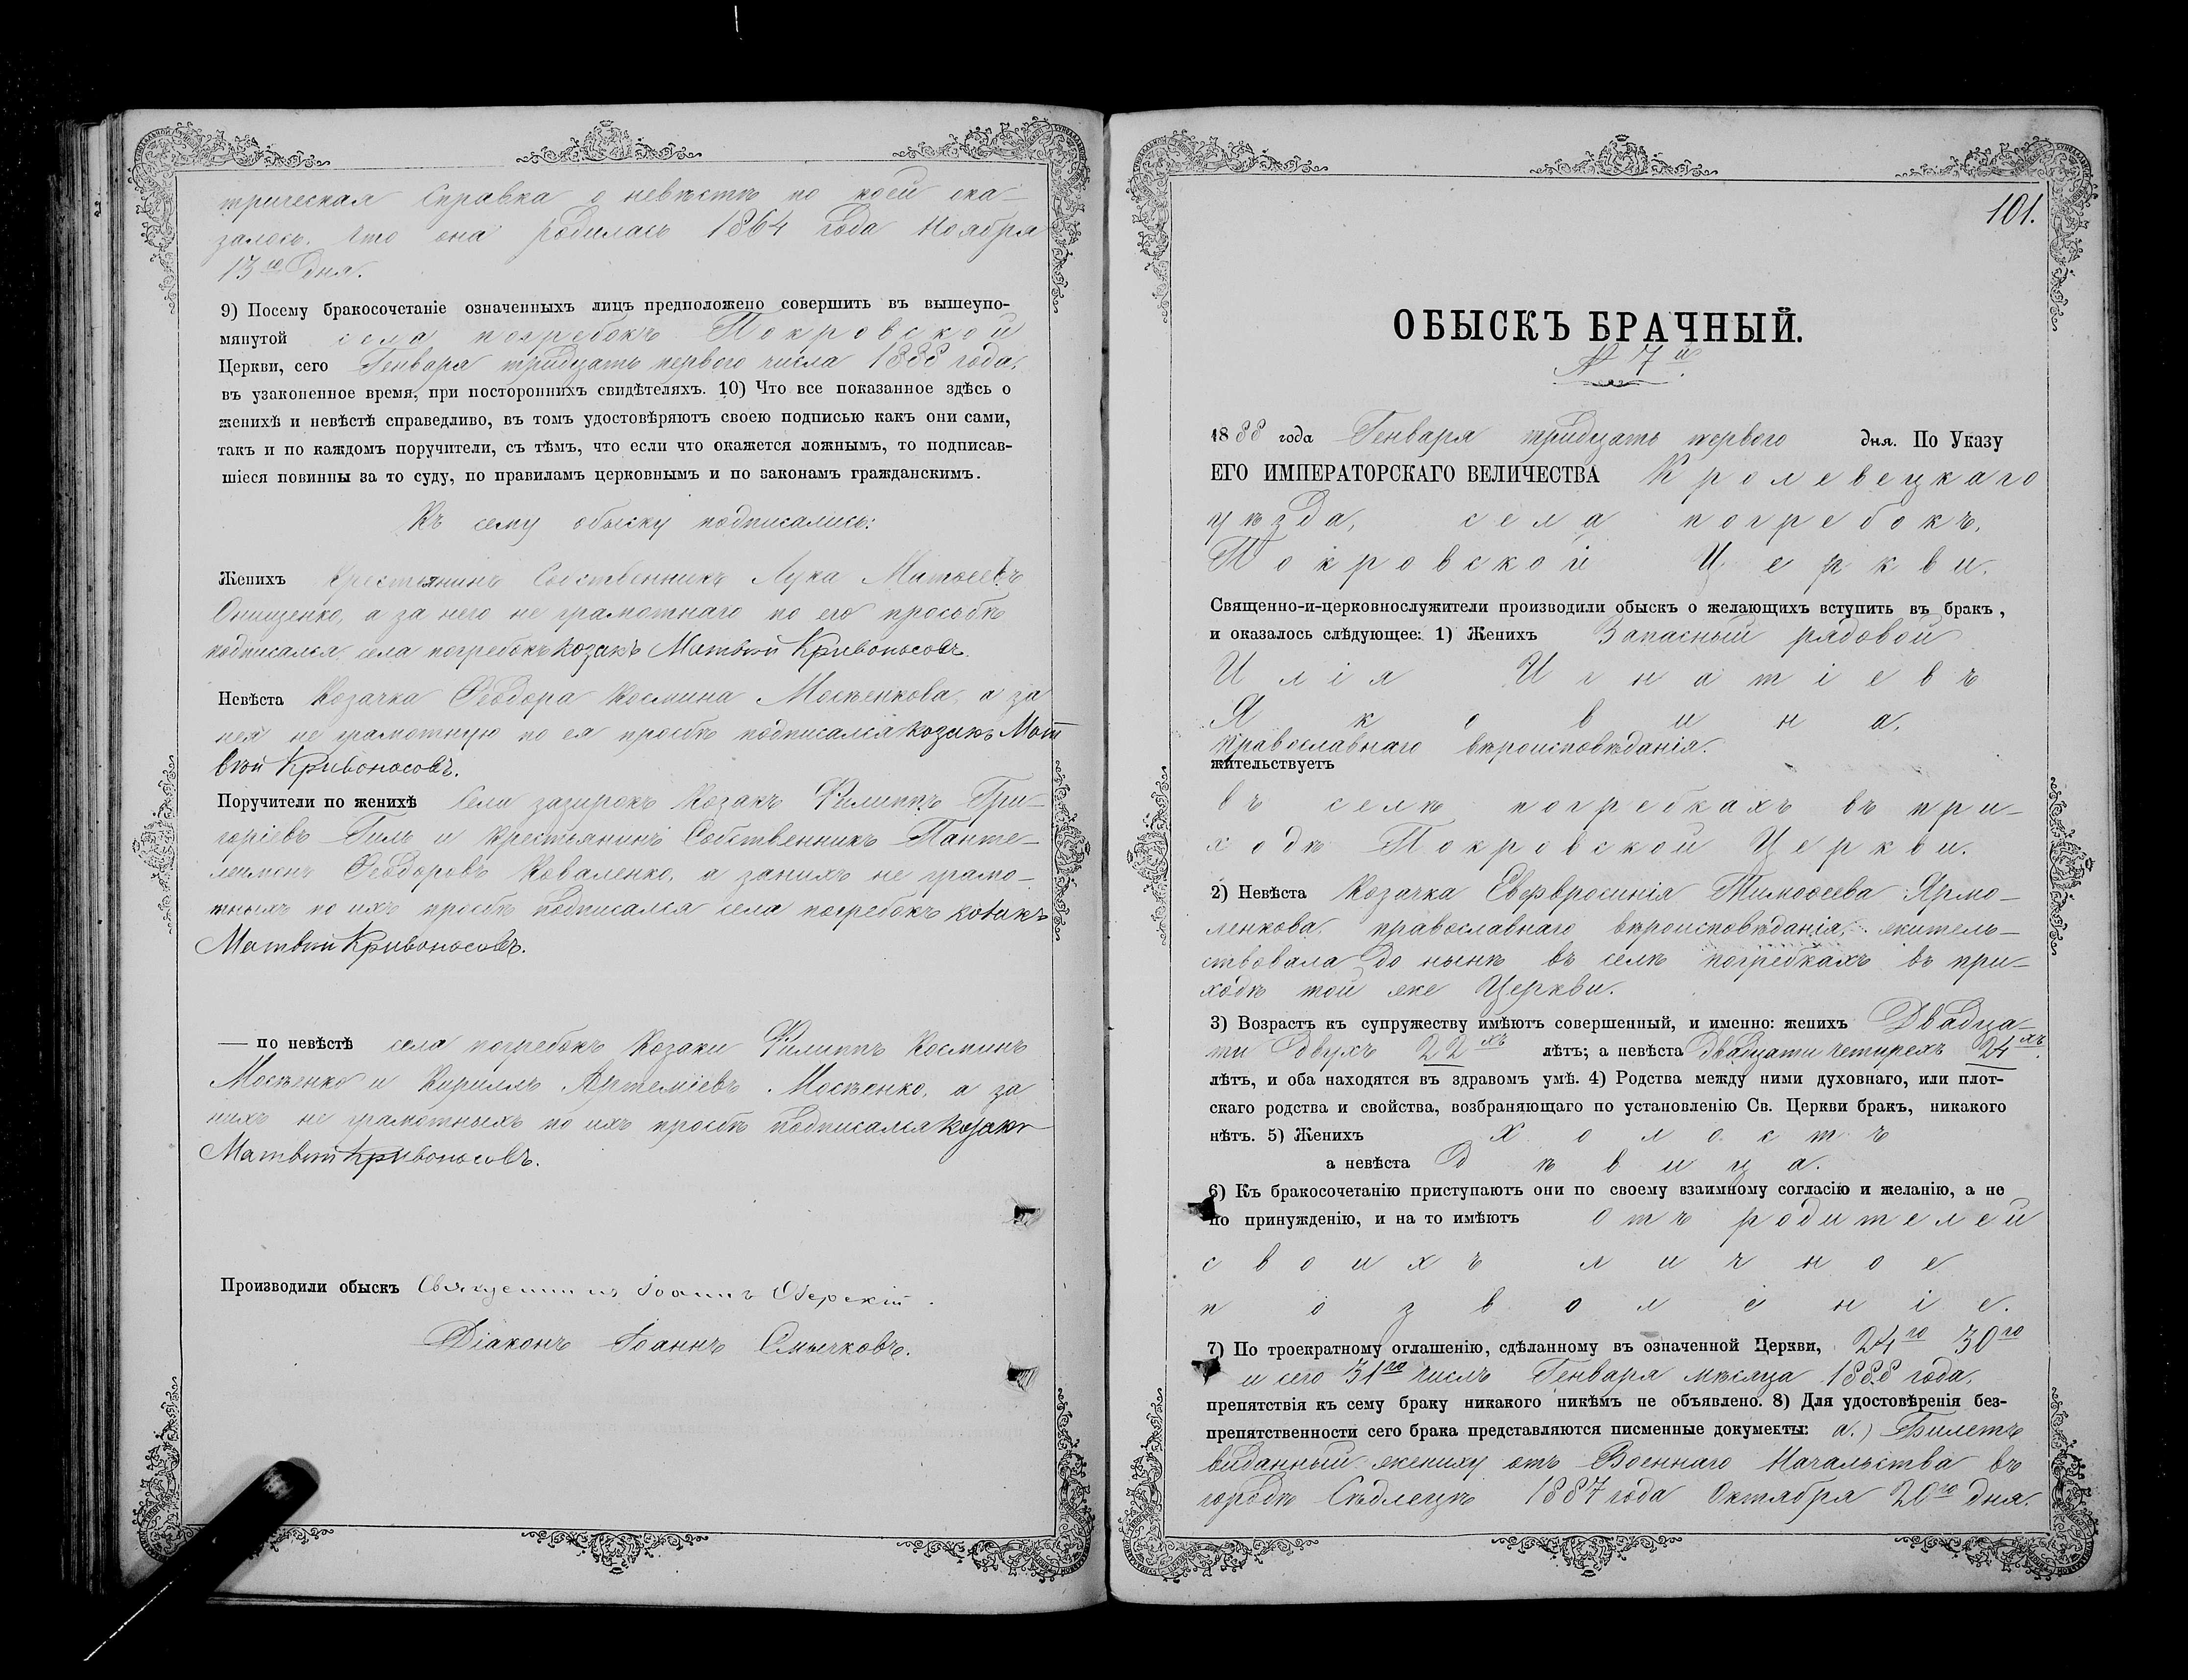 трическая справка о невѣстѣ по коей ока-
залось, что она родилась 1864 года Ноября
13го дня.
9) Посему бракосочетаніе означенныхъ лицъ предположено совершить въ вышеупо-
мянутой села погребокъ Покровской
Церкви, сего Генваря тридцать перваго числа 1888 года,
въ узаконенное время, при постороннихъ свидѣтеляхъ. 10) Что все показанное здѣсь о
женихѣ и невѣстѣ справедливо, въ томъ удостовѣряютъ своею подписью какъ они сами,
такъ и по каждомъ поручители, съ тѣмъ, что если что окажется ложнымъ, то подписав-
шіеся повинны за то суду, по правиламъ церковнымъ и по законамъ гражданскимъ.
Къ сему обыску подписались:
Женихъ Крестьянинъ Собственникъ Лука Матвеевъ
Онищенко, а за него не грамотнаго по его прозьбѣ
подписался села погребокъ козакъ Матвій Кривоносовъ.
Невѣста Козачка Ѳеодора Космина Мосѣенкова, а за
нея не грамотную по ея прозбѣ подписался козакъ Мат
вій Кривоносовъ.
Поручители по женихѣ Села зазирокъ Козакъ Филиппъ Гри-
горіевъ Гиль и Крестьянинъ Собственникъ Панте-
леимонъ Ѳеодоровъ Коваленко, а занихъ не грамо-
тныхъ по ихъ прозбѣ подписался села погребокъ козакъ
Матвій Кривоносовъ.
— по невѣстѣ села погребокъ Козаки Филиппъ Косминъ
Мосѣенко и Кириллъ Артеміевъ Мосѣенко, а за
нихъ не грамотныхъ по ихъ прозбѣ подписался козакъ
Матвій Кривоносовъ.
Производили обыскъ Священникъ Іоаннъ
Діаконъ Іоаннъ Смычковъ.
101.
ОБЫСКЪ БРАЧНЫЙ.
№ 7й
1888 года Генваря тридцать перваго дня. По Указу
ЕГО ИМПЕРАТОРСКАГО ВЕЛИЧЕСТВА Кролевецкаго
уѣзда, села погребокъ,
Покровской Церкви.
Священно-и-церковнослужители производили обыскъ о желающихъ вступить въ бракъ,
и оказалось слѣдующее: 1) Женихъ Запасный рядовой
Илія Игнатіевъ
Яковина,
православнаго вѣроисповѣданія.
жительствуетъ
въ селѣ погребкахъ въ при-
ходѣ Покровской Церкви.
2) Невѣста Козачка Евфвросинія Тимоѳеева Ярмо-
ленкова, православнаго вѣроисповѣданія, житель-
ствовала до нынѣ въ селѣ погребкахъ въ при-
ходѣ той же Церкви.
3) Возрастъ къ супружеству имѣютъ совершенный, и именно: женихъ Двадца-
ти двухъ 22хъ лѣтъ; а невѣста двадцати четырехъ 24хъ
лѣтъ, и оба находятся въ здравомъ умѣ. 4) Родства между ними духовнаго, или плот-
скаго родства и свойства, возбраняющаго по установленію Св. Церкви бракъ, никакого
нѣтъ. 5) Женихъ Холостъ
а невѣста Дѣвица.
6) Къ бракосочетанію приступаютъ они по своему взаимному согласію и желанію, а не
по принужденію, и на то имѣютъ отъ родителей
своихъ личное
позволеніе.
7) По троекратному оглашенію, сдѣланному въ означенной Церкви, 24го 30го
и сего 31го числъ Генваря мѣсяца 1888 года,
препятствія къ сему браку никакого никѣмъ не объявлено. 8) Для удостовѣренія без-
препятственности сего брака представляются писменные документы: а.) Билетъ
виданный жениху отъ Военнаго Начальства въ
городѣ Сѣдлецѣ 1887 года Октября 20го дня.